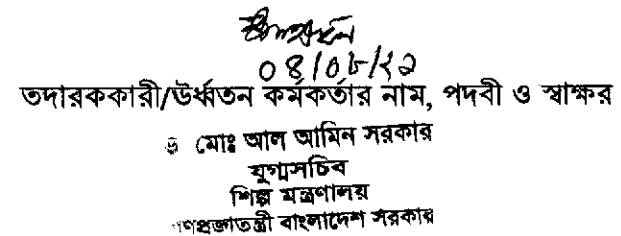 ০৪/০৮/২১
তদারককারী/উর্ধ্বতন কর্মকর্তার নাম, পদবী ও স্বাক্ষর
ড মোঃ আল আমিন সরকার
যুগ্মসচিব
শিল্প মন্ত্রণালয়
গণপ্রজাতন্ত্রী বাংলাদেশ সরকার